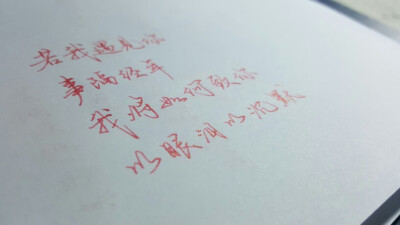 若我遇见你
事隔经年
我将如何致你
以眼泪以沉默